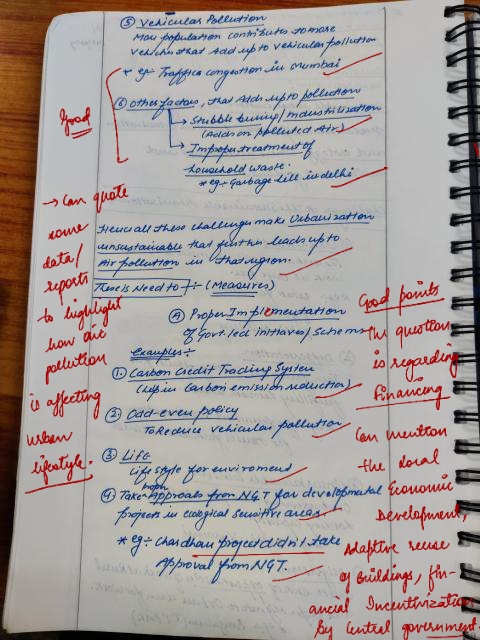 ⑤ Vehicular Pollution
More population contributes to more
vehicles that Add up to vehicular pollution
* eg:- Traffic congestion in mumbai
⑥ Other factors, that Adds up to pollution
→ Stubble burning/Industilization
(Adds on polluted Air)
→ Improper treatment of
household waste.
* eg:- Garbage hill in delhi
Good
→ Can quote
some
data/
reports
to highlight
how air
pollution
is affecting
urban
lifestyle.
Hence all these challenges make Urbanization
unsustainable that further leads up to
Air pollution in that region.
There is Need to :- (Measures)
Ⓐ Proper Implementation
of Govt. led initiaves/ Schemes
Examples :-
①. Carbon Credit Trading System
(Help in Carbon emission reduction)
② Odd-even policy
To Reduce vehicular pollution
③ Life
Life style for enviroment
④ Take proper Approvals from NGT for developmental
projects in ecological sensitive areas
* eg:- Chardham project didn't take
Approval from NGT.
Good points
The question
is regarding
financing
Can mention
the local
Economic
Development,
Adaptive reuse
of buildings, fin-
ancial Incentivization
by Central government.